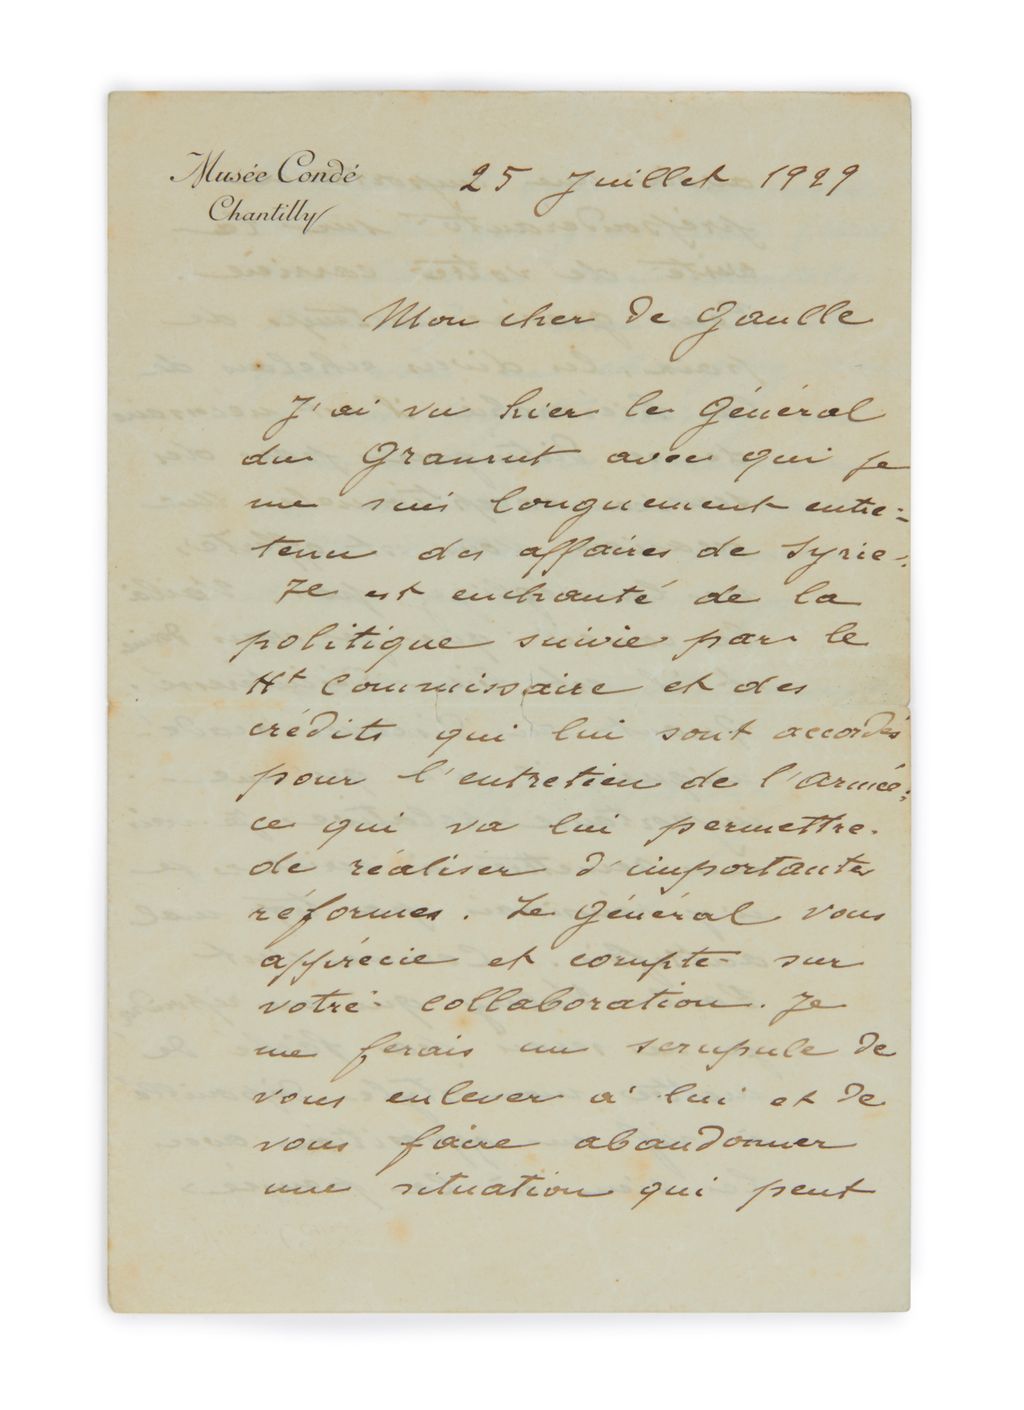 Musée Condé
Chantilly
25 Juillet 1929
Mon cher de Gaulle
J'ai vu hier le Général
du Granrut avec qui je
me suis longuement entre-
tenu des affaires de Syrie.
Il est enchanté de la
politique suivie par le
Ht Commissaire et des
crédits qui lui sont accordés
pour l'entretien de l'armée;
ce qui va lui permettre
de réaliser d'importantes
réformes. Le Général vous
apprécie et compte sur
votre collaboration. Je
me ferais un scrupule de
vous enlever à lui et de
vous faire abandonner
une situation qui peut